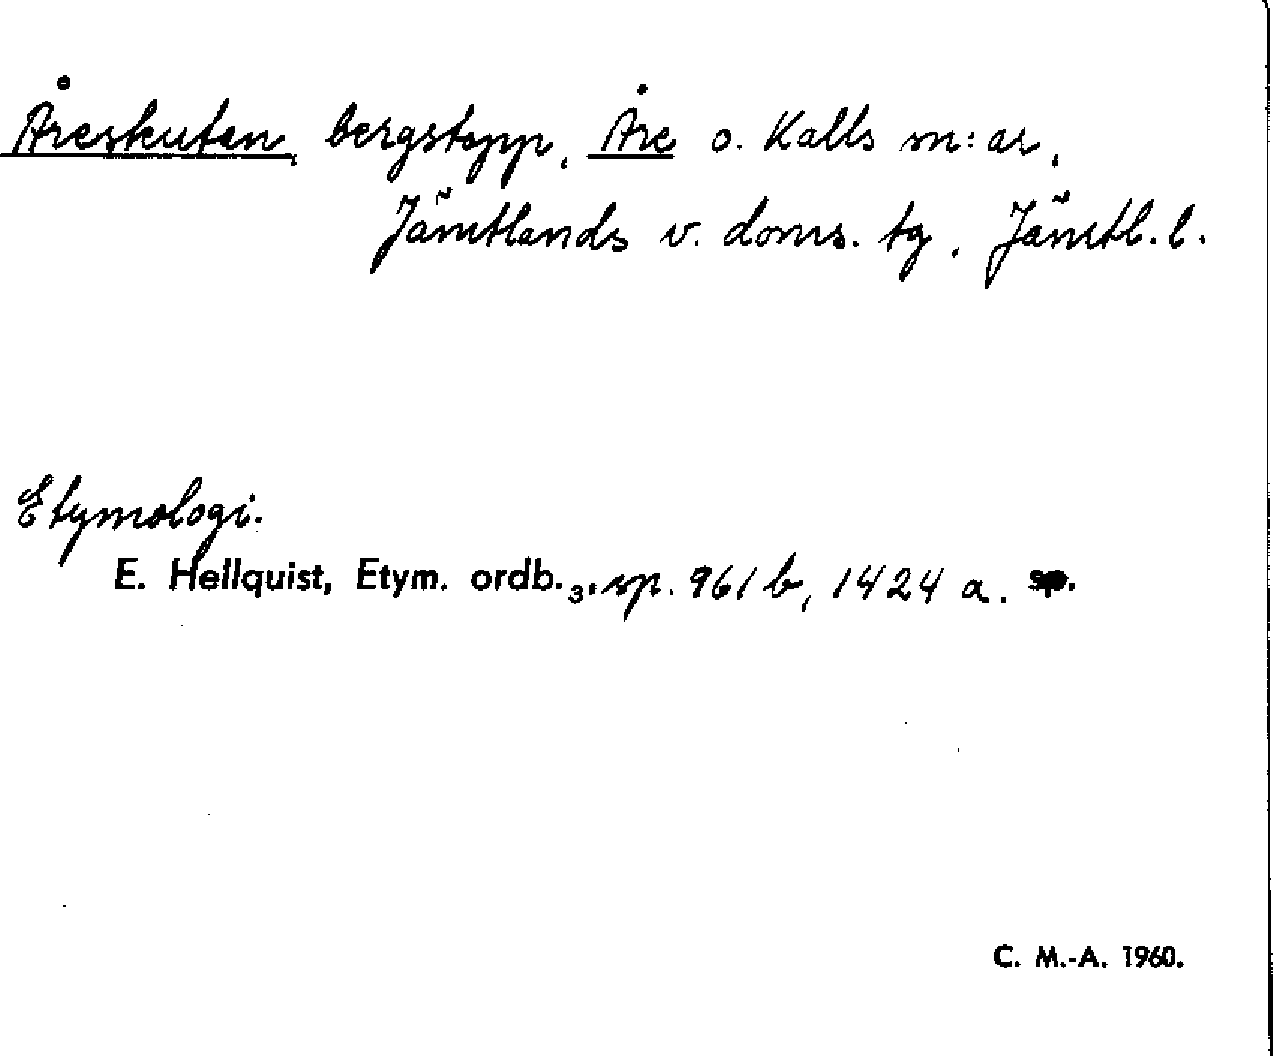 Åreskutan, bergstopp, Åre o. Kalls m:ar,
Jämtlands v. doms. tg, Jämtl. l.
Etymologi.
E. Hellquist, Etym. ordb.3, sp. 961 b, 1424 a. sp.
C. M.-A. 1960.